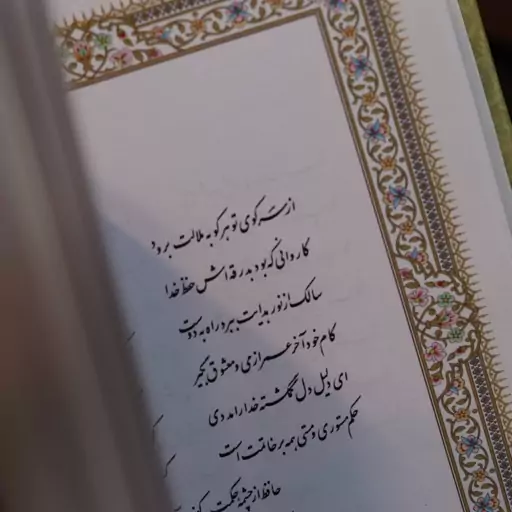 از سر کوی تو هر کو به ملالت برود
کاروانی که بود بدرقه اش حفظ خدا
سالک از نور هدایت ببرد راه به دوست
کام خود آخر عمر از می و معشوق بگیر
ای دلیل دل گمگشته خدا را مددی
حکم مستوری و مستی همه بر خاتمت است
حافظ از چشمه حکمت